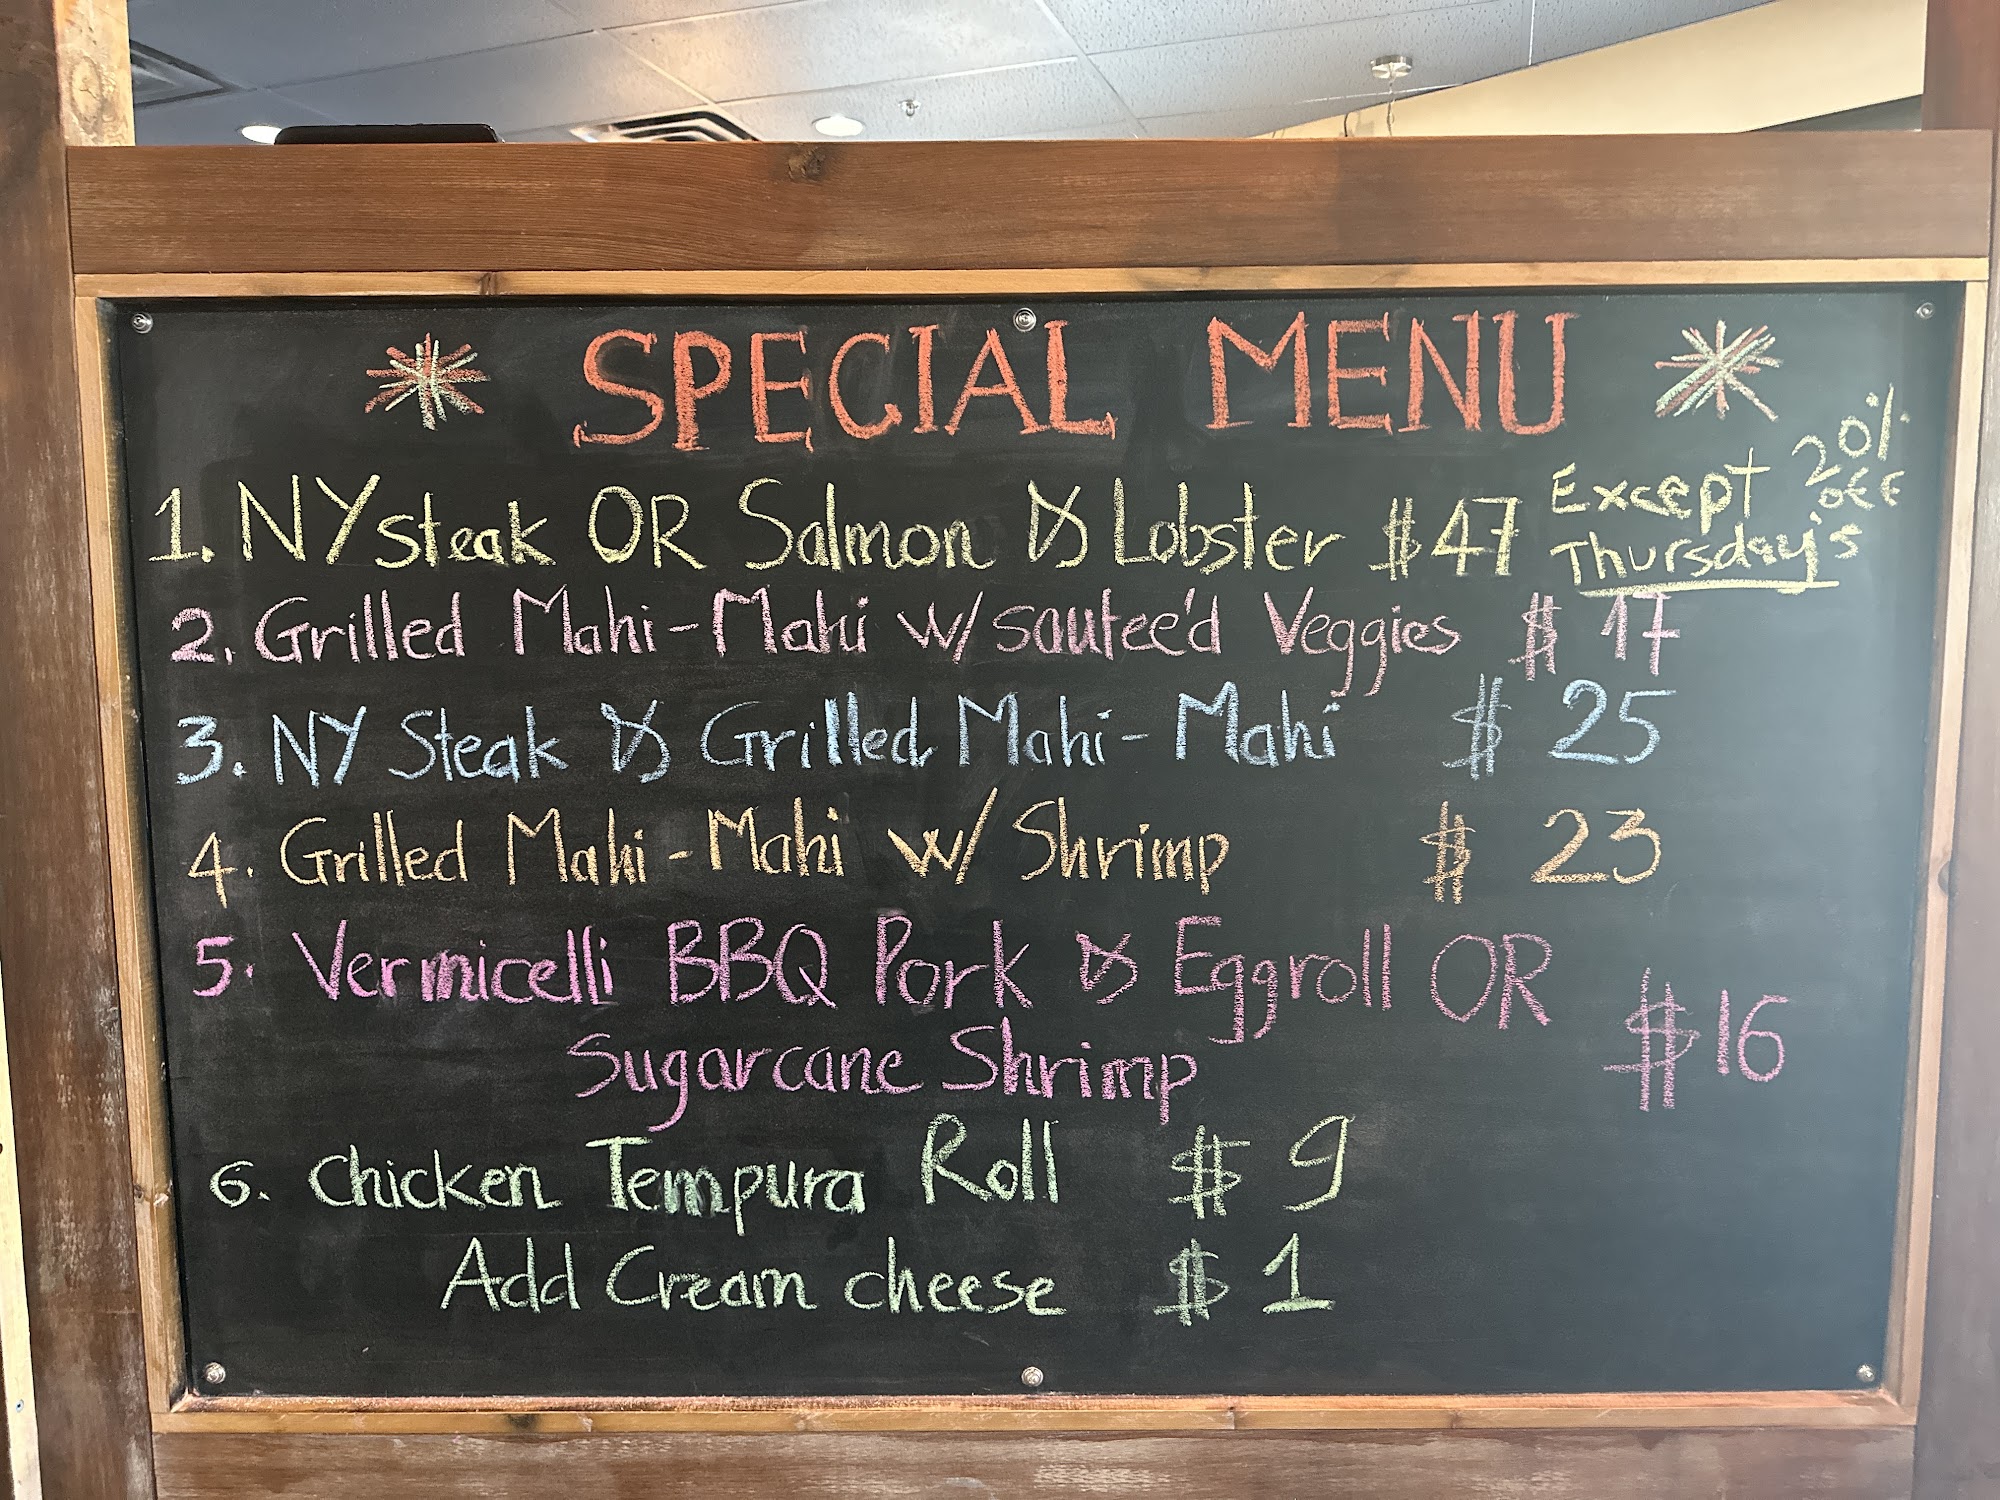 SPECIAL MENU
1. NY Steak OR Salmon & Lobster $47 Except 20% off Thursday's
2. Grilled Mahi-Mahi w/ sautee'd Veggies $ 17
3. NY Steak & Grilled Mahi-Mahi $ 25
4. Grilled Mahi-Mahi w/ Shrimp $ 23
5. Vermicelli BBQ Pork & Eggroll OR
Sugarcane Shrimp $16
6. Chicken Tempura Roll $ 9
Add Cream cheese $ 1